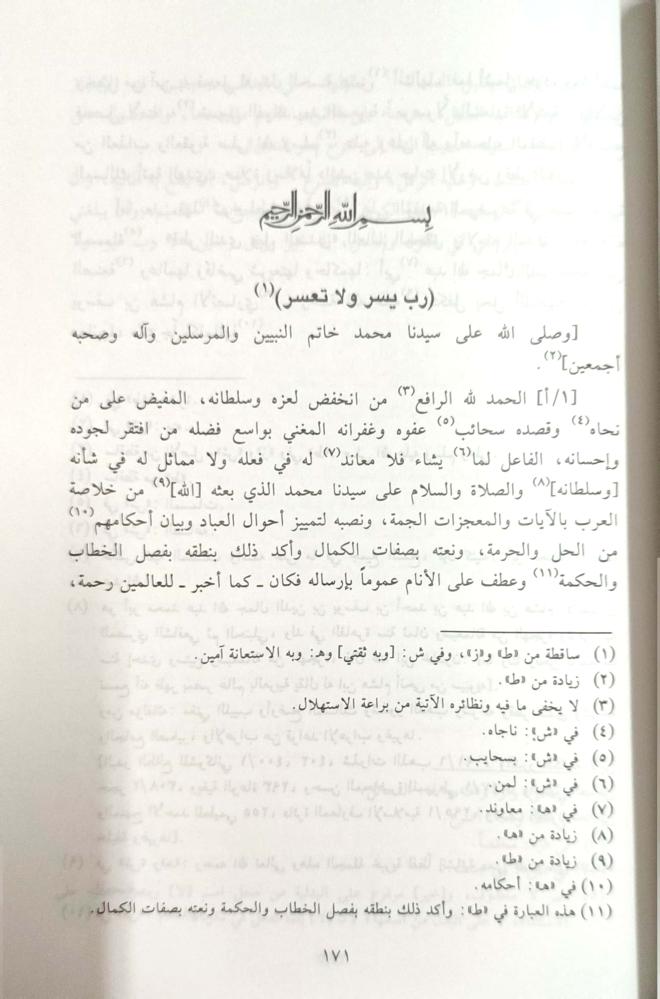 بسم الله الرحمن الرحيم
(رب يسر ولا تعسر)(١)
[وصلى الله على سيدنا محمد خاتم النبيين والمرسلين وآله وصحبه
أجمعين](٢).
[١/أ] الحمد لله الرافع(٣) من انخفض لعزه وسلطانه، المفيض على من
نحاه(٤) وقصده سحائب(٥) عفوه وغفرانه المغني بواسع فضله من افتقر لجوده
وإحسانه، الفاعل لما(٦) يشاء فلا معاند(٧) له في فعله ولا مماثل له في شأنه
[وسلطانه](٨) والصلاة والسلام على سيدنا محمد الذي بعثه [الله](٩) من خلاصة
العرب بالآيات والمعجزات الجمة، ونصبه لتمييز أحوال العباد وبيان أحكامهم(١٠)
من الحل والحرمة، ونعته بصفات الكمال وأكد ذلك بنطقه بفصل الخطاب
والحكمة(١١) وعطف على الأنام عموماً بإرساله فكان ـ كما أخبر ـ للعالمين رحمة،
(١) ساقطة من «ط» و«ز»، وفي ش: [وبه ثقتي] وهـ: وبه الاستعانة آمين.
(٢) زيادة من «ط».
(٣) لا يخفى ما فيه ونظائره الآتية من براعة الاستهلال.
(٤) في «ش»: ناجاه.
(٥) في «ش»: بسحايب.
(٦) في «ش»: لمن.
(٧) في «هـ»: معاوند.
(٨) زيادة من «هـ».
(٩) زيادة من «ط».
(١٠) في «هـ»: أحكامه.
(١١) هذه العبارة في «ط»: وأكد ذلك بنطقه بفصل الخطاب والحكمة ونعته بصفات الكمال.
١٧١